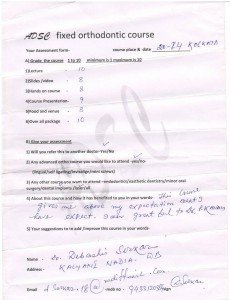 ADSC fixed orthodontic course
Your Assessment form- course place & date 22-24 KOLKATA
A) Grade the course 1 to 10 minimum is 1 maximum is 10
1)Lecture - 10
2)Slides /video - 8
3)Hands on course - 8
4)Course Presentation- 9
5)Food and venue - 8
6)Over all package - 10
B) Give your assessment
1) Will you refer this to another doctor-Yes/No
2) Any advanced ortho course you would like to attend -yes/no-
(lingual/self ligating/invisalign/mini screws)
3) Any other course you want to attend -endodontics/esthetic dentistry/minor oral
surgery/dental implants /laser/all
4) About this course and how it has benefited to you in your words- This course
gives me above my expectation
have expect. I am great full to Dr.
5) Your suggestions to to add/improve this course in your words-
Name - Dr. Debashis Sarkar
Address - KALYANI NADIA - WB
Email mob no -